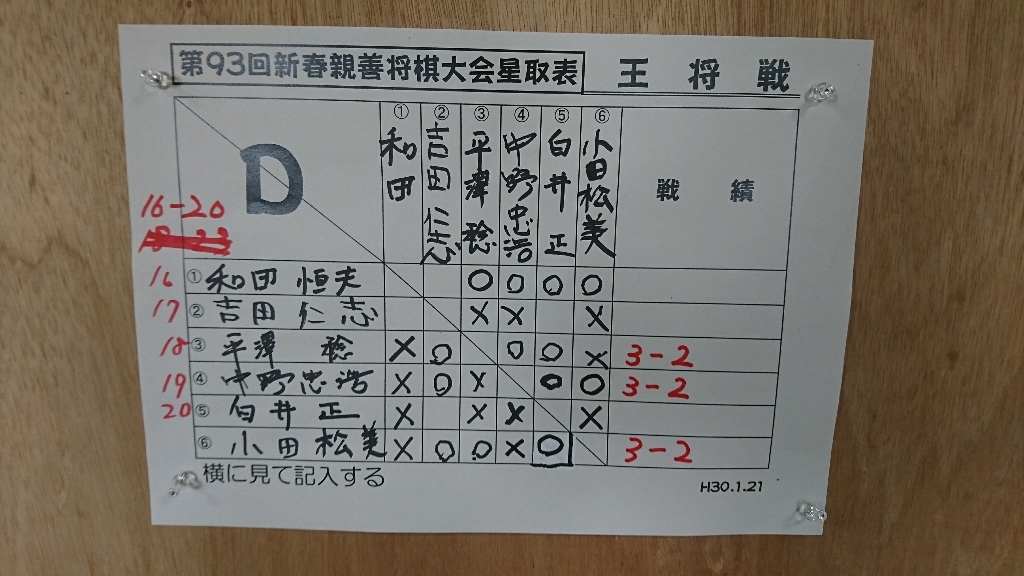 第93回新春親善将棋大会星取表 王将戦
D ① 和田 ② 吉田仁志 ③ 平澤稔 ④ 中野忠浩 ⑤ 白井正 ⑥ 小田松美 戦績
16-20
16 ① 和田 恒夫 ○ ○ ○ ○
17 ② 吉田 仁志 × × ×
18 ③ 平澤 稔 × ○ ○ ○ × 3-2
19 ④ 中野忠浩 × ○ × ○ ○ 3-2
20 ⑤ 白井 正 × × × ×
⑥ 小田 松美 × ○ ○ × ○ 3-2
横に見て記入する
H30.1.21